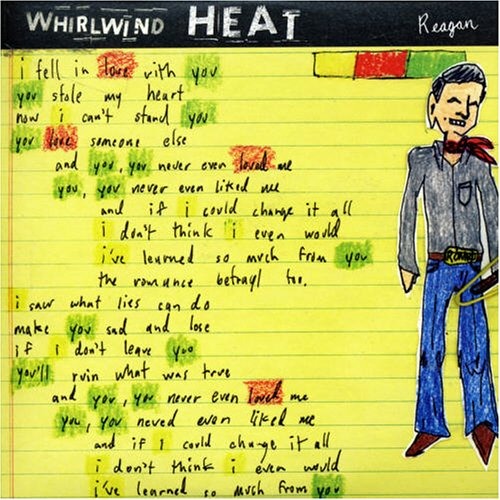 WHIRLWIND HEAT
Reagan
i fell in love with you
you stole my heart
now i can't stand you
you love someone else
and you, you never even loved me
you, you never even liked me
and if i could change it all
i don't think i even would
i've learned so much from you
the romance betrayl too.
i saw what lies can do
make you sad and lose
if i don't leave you
you'll ruin what was true
and you, you never even loved me
you, you neved even liked me
and if i could change it all
i don't think i even would
i've learned so much from you
RONALD